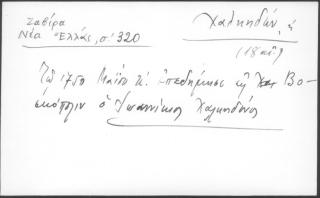 Ζαβίρα
Νέα Ἑλλάς, σ. 320
Χαλκηδών, ἡ
(18 αἰ.)
Τῷ 1750 Μαΐου κ. ἐπεδήμησε ἐν Βο-
σκόπολιν ὁ Ἰωαννίκιος Χαλκηδόνος